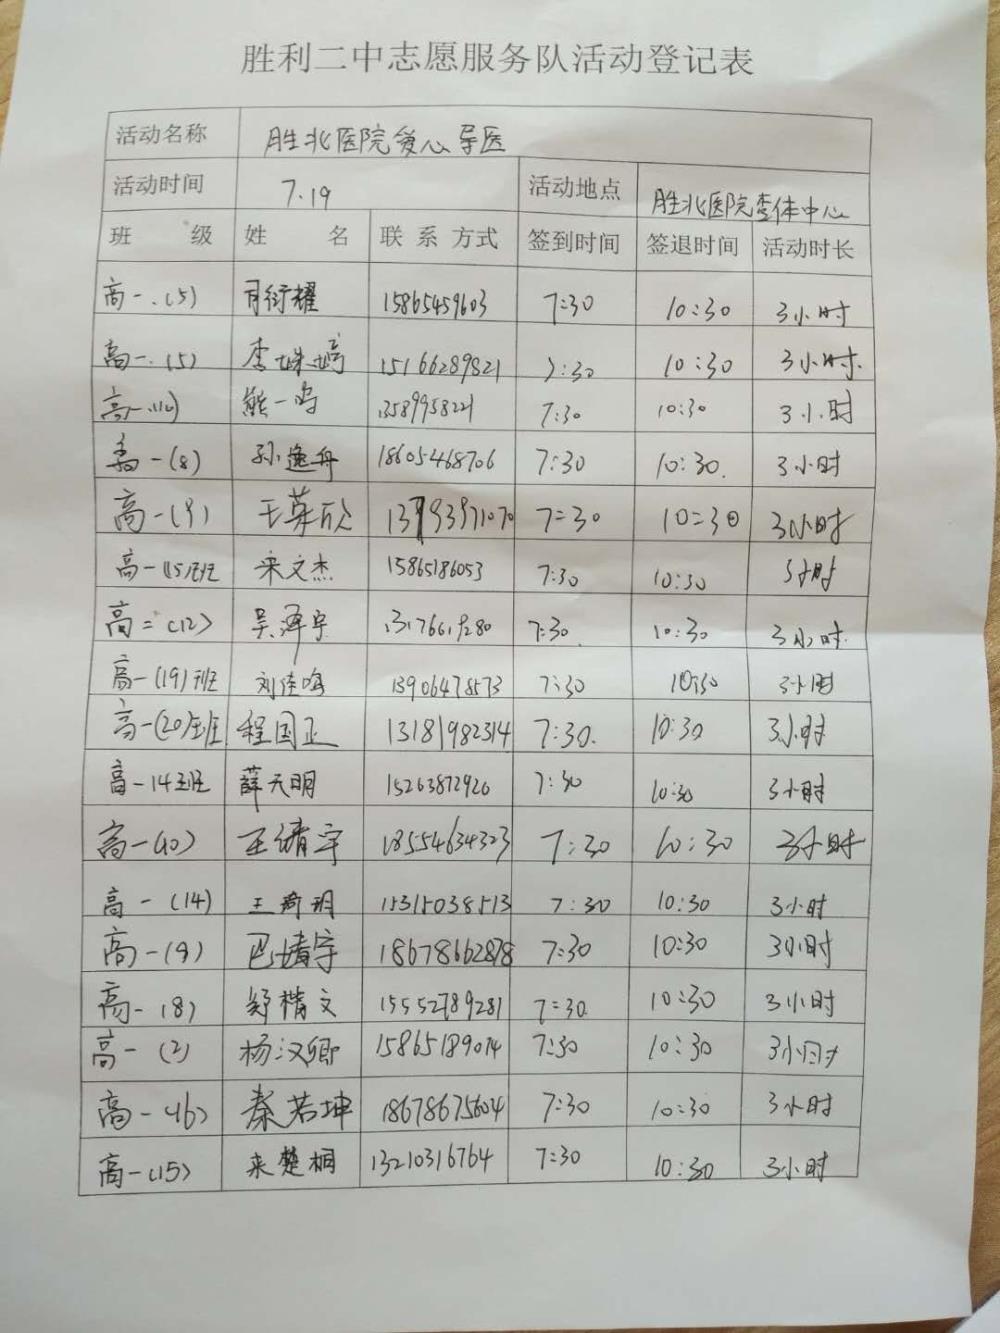 胜利二中志愿服务队活动登记表
活动名称 胜北医院爱心导医
活动时间 7.19 活动地点 胜北医院查体中心
班 级 姓 名 联 系 方式 签到时间 签退时间 活动时长
高一.(5) 司衍耀 15865459603 7:30 10:30 3小时
高一.(5) 李姝婷 15166289821 7:30 10:30 3小时.
高一 熊一鸣 13589958221 7:30 10:30 3小时
高一(8) 孙逸舟 18605468706 7:30 10:30. 3小时
高一(9) 王英欣 7:30 10:30 3小时
高一(15)班 宋文杰 15865186053 7:30 10:30 3小时
高二(12) 吴泽宇 7:30. 10:30 3小时.
高一(19)班 刘佳鸣 13906478573 7:30 10:30 3小时
高一(20)班 程国正 13181982314 7:30. 10:30 3小时
高一14班 薛天明 15263872926 7:30 10:30 3小时
高一(10) 王靖宇 18554634323 7:30 10:30 3小时
高一(14) 王琦玥 15315038513 7:30 10:30 3小时
高一(9) 巴靖宇 18678662878 7:30 10:30 3小时
高一(8) 舒楷文 15552789281 7:30. 10:30 3小时
高一(2) 杨汉卿 15865189014 7:30 10:30 3小时
高一(16) 秦若坤 18678675604 7:30 10:30 3小时
高一(15) 来楚桐 13210316764 7:30 10:30 3小时